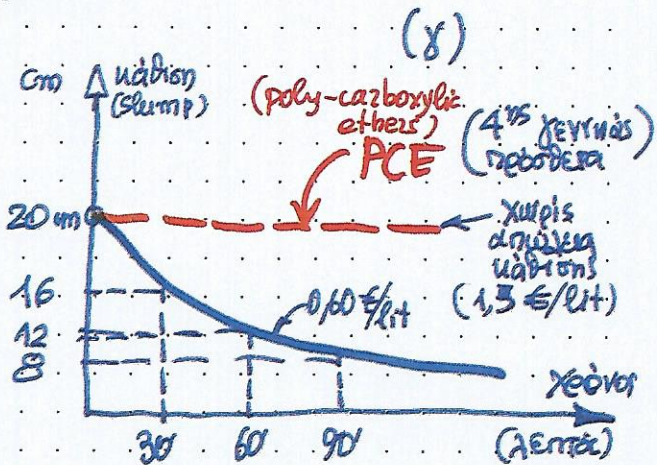 (γ)
cm κάθιση
(slump)
(poly-carboxylic
ethers)
PCE
(4ης γεννιάς
πρόσθετα)
20 cm
χωρίς
απώλεια
κάθισης
(1,5 €/lit)
16
0,60 €/lit
12
8
χρόνοι
30' 60' 90' (λεπτά)